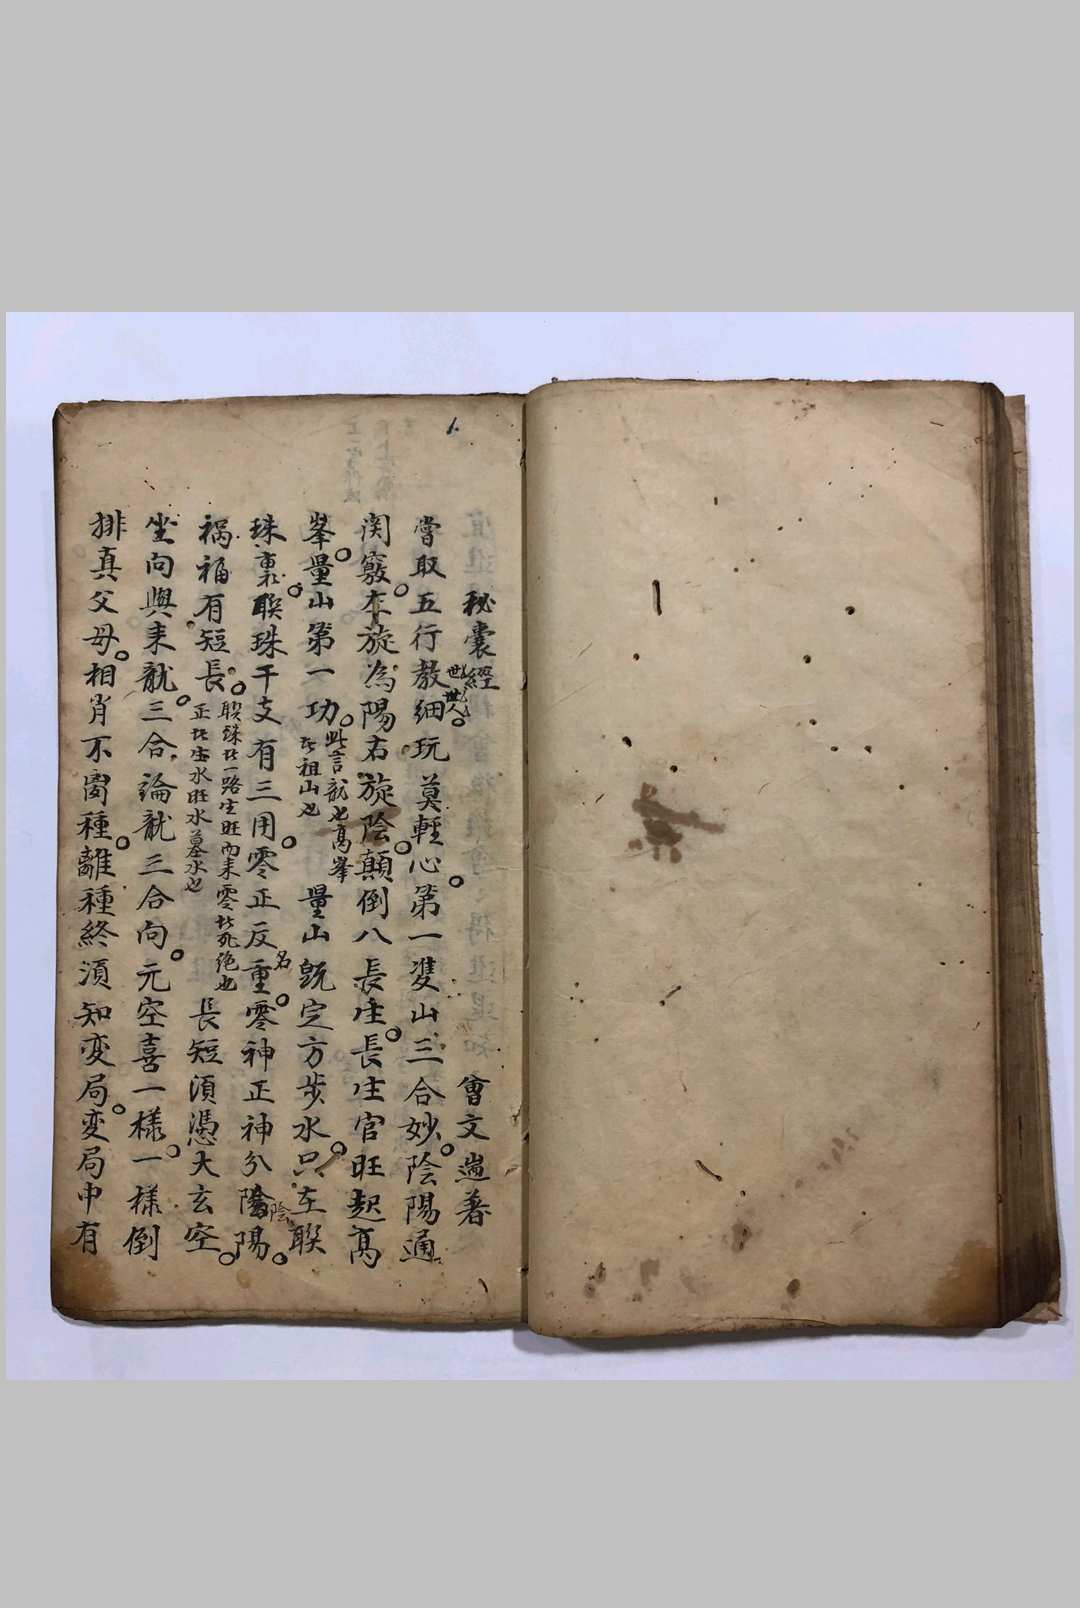 秘囊經 會文遄著
嘗取五行教世世人細玩莫輕心第一雙山三合妙陰陽通
関竅左旋為陽右旋陰顛倒八長生長生官旺起高
峯量山第一功此言龍也高峯
七祖山也 量山既定方步水只在聯
珠裏聯珠干支有三用零正反名重零神正神分陰陽
禍福有短長聯珠北一路生旺而来零北死绝也
正北生水旺水墓水也 長短須憑大玄空
坐向與来龍三合論龍三合向元空喜一樣一樣倒
排真父母相肖不离種離種終須知変局変局中有